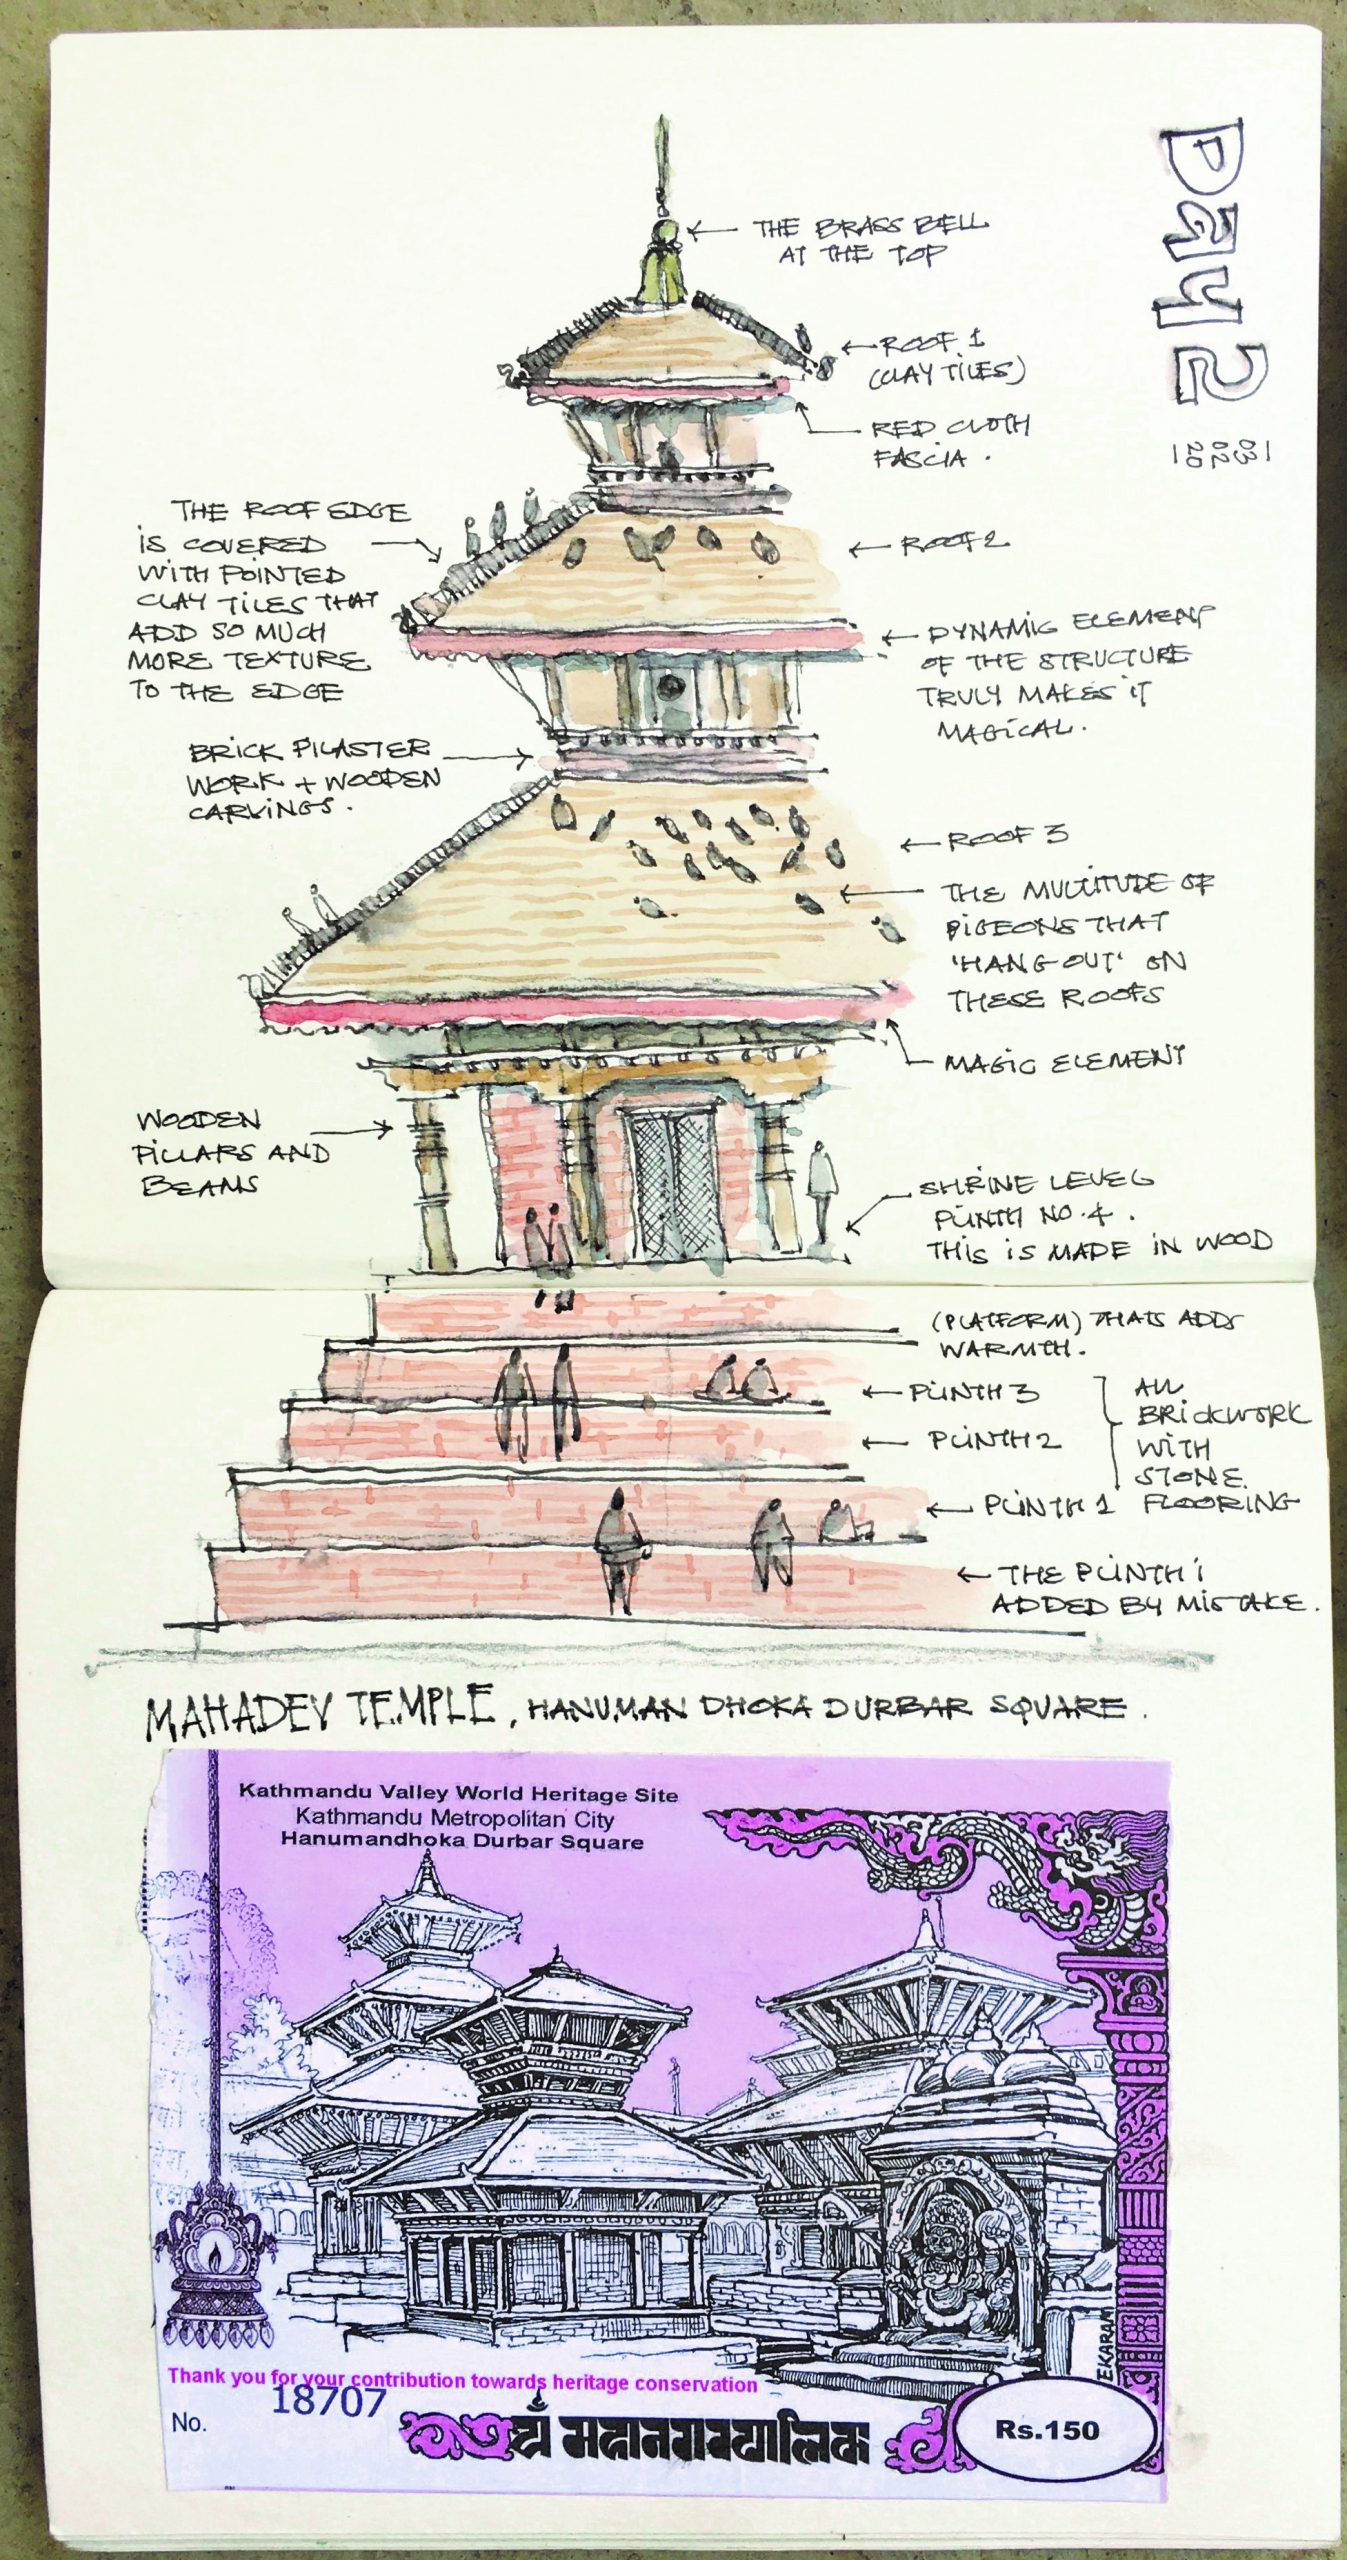 Day 2
THE BRASS BELL
AT THE TOP
ROOF 1
(CLAY TILES)
RED CLOTH
FASCIA.
THE ROOF EDGE
IS COVERED
WITH POINTED
CLAY TILES THAT
ADD SO MUCH
MORE TEXTURE
TO THE EDGE
ROOF 2
DYNAMIC ELEMENT
OF THE STRUCTURE
TRULY MAKES IT
MAGICAL.
BRICK PILASTER
WORK + WOODEN
CARVINGS.
ROOF 3
THE MULTITUDE OF
PIGEONS THAT
'HANG OUT' ON
THESE ROOFS
MAGIC ELEMENT
WOODEN
PILLARS AND
BEAMS
SHRINE LEVEL
PLINTH NO. 4.
THIS IS MADE IN WOOD
(PLATFORM) THATS ADDS
WARMTH.
PLINTH 3
PLINTH 2
PLINTH 1
ALL
BRICKWORK
WITH
STONE
FLOORING
THE PLINTH I
ADDED BY MISTAKE.
MAHADEV TEMPLE, HANUMAN DHOKA DURBAR SQUARE.
Kathmandu Valley World Heritage Site
Kathmandu Metropolitan City
Hanumandhoka Durbar Square
EKARAM
Thank you for your contribution towards heritage conservation
No. 18707
Rs.150